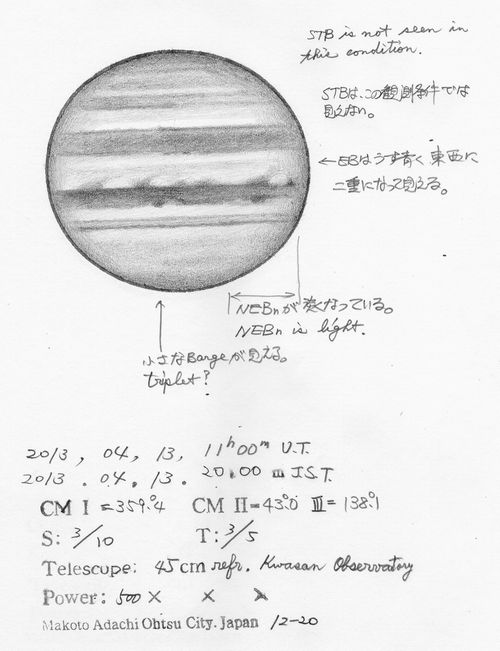 STB is not seen in
this condition.
STBは、この観測条件では
見えない。
←EBはうす青く東西に
二重になって見える。
NEBnが淡くなっている。
NEBn is light.
小さなBargeが見える。
triplet?
2013, 04, 13, 11h00m U.T.
2013. 04. 13. 20.00 m J.S.T.
CM I = 359.°4 CM II = 43.°0 III = 138.°1
S: 3/10 T: 3/5
Telescope: 45cm refr. Kwasan Observatory
Power: 500 × × ×
Makoto Adachi Ohtsu City. Japan 12-20